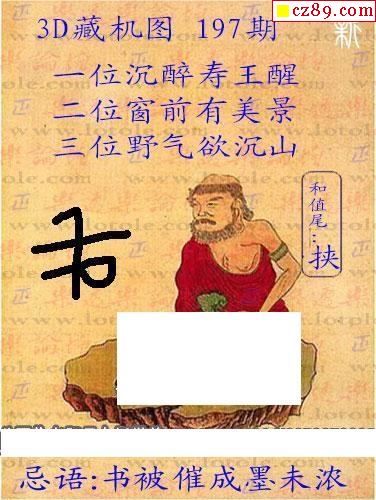 cz89.com
3D藏机图 197期
新
一位沉醉寿王醒
二位窗前有美景
三位野气欲沉山
和值尾:挟
忌语:书被催成墨未浓